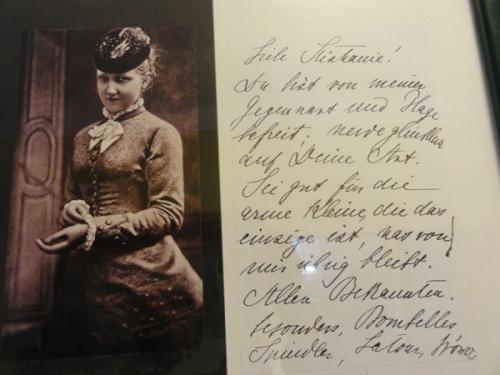 Liebe Stephanie!
Du bist von meiner
Gegenwart und Plage
befreit; werde glücklich
auf Deine Art.
Sei gut für die
arme Kleine, die das
einzige ist, was von
mir übrig bleibt.
Allen Bekannten,
besonders, Bombelles,
Spindler, Latour, Wowo,